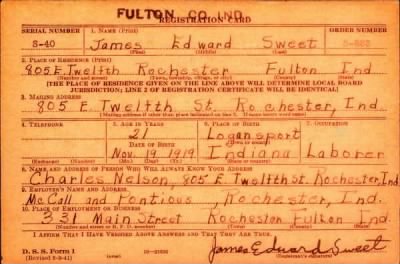 FULTON CO. IND.
REGISTRATION CARD
SERIAL NUMBER 1. NAME (Print) ORDER NUMBER
S-40 James Edward Sweet
(First) (Middle) (Last)
2. PLACE OF RESIDENCE (Print)
805 E. Twelfth Rochester Fulton Ind
(Number and street) (Town, township, village, or city) (County) (State)
[THE PLACE OF RESIDENCE GIVEN ON THE LINE ABOVE WILL DETERMINE LOCAL BOARD
JURISDICTION; LINE 2 OF REGISTRATION CERTIFICATE WILL BE IDENTICAL]
3. MAILING ADDRESS
805 E. Twelfth St. Rochester, Ind.
[Mailing address if other than place indicated on line 2. If same insert word same]
4. TELEPHONE 5. AGE IN YEARS 6. PLACE OF BIRTH 7. OCCUPATION
21 Logansport
DATE OF BIRTH (Town or county)
Nov. 19 1919 Indiana Laborer
(Exchange) (Number) (Mo.) (Day) (Yr.) (State or country)
8. NAME AND ADDRESS OF PERSON WHO WILL ALWAYS KNOW YOUR ADDRESS
Charles Nelson, 805 E Twelfth St. Rochester Ind
9. EMPLOYER'S NAME AND ADDRESS
McCall and Pontious, Rochester, Ind.
10. PLACE OF EMPLOYMENT OR BUSINESS
331 Main Street Rochester Fulton Ind.
(Number and street or R. F. D. number) (Town) (County) (State)
I AFFIRM THAT I HAVE VERIFIED ABOVE ANSWERS AND THAT THEY ARE TRUE.
D. S. S. Form 1
James Edward Sweet
(Registrant's signature)